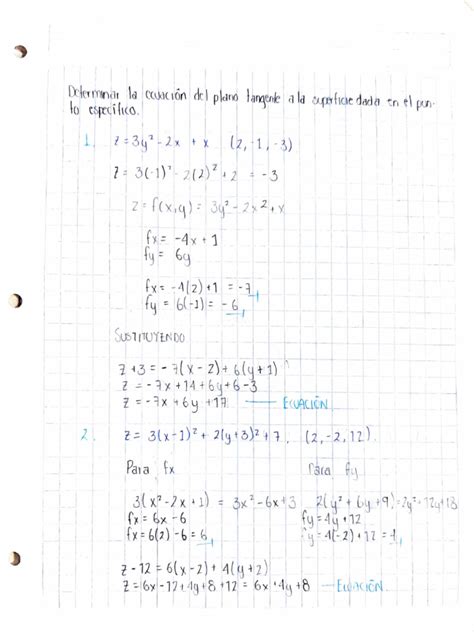 Determinar la ecuación del plano tangente a la superficie dada en el pun-
to específico.
1. z = 3y² - 2x + x (2, -1, -3)
z = 3(-1)² - 2(2)² + 2 = -3
z = f(x,y) = 3y² - 2x² + x
fx = -4x + 1
fy = 6y
fx = -4(2) + 1 = -7
fy = 6(-1) = -6
SUSTITUYENDO
z + 3 = -7(x - 2) + 6(y + 1)
z = -7x + 14 + 6y + 6 - 3
z = -7x + 6y + 17 — ECUACIÓN
2. z = 3(x-1)² + 2(y+3)² + 7, (2, -2, 12).
Para fx Para fy
3(x² - 2x + 1) = 3x² - 6x + 3 2(y² + 6y + 9) = 2y² + 12y + 18
fx = 6x - 6 fy = 4y + 12
fx = 6(2) - 6 = 6 fy = 4(-2) + 12 = 4
z - 12 = 6(x - 2) + 4(y + 2)
z = 6x - 12 + 4y + 8 + 12 = 6x + 4y + 8 — ECUACIÓN